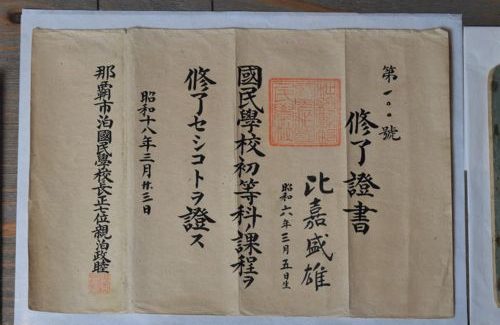 第一〇〇號
修了證書
比嘉盛雄
昭和六年三月五日生
國民學校初等科ノ課程ヲ
修了セシコトヲ證ス
昭和十八年三月廿三日
那霸市泊國民學校長正七位親泊政睦